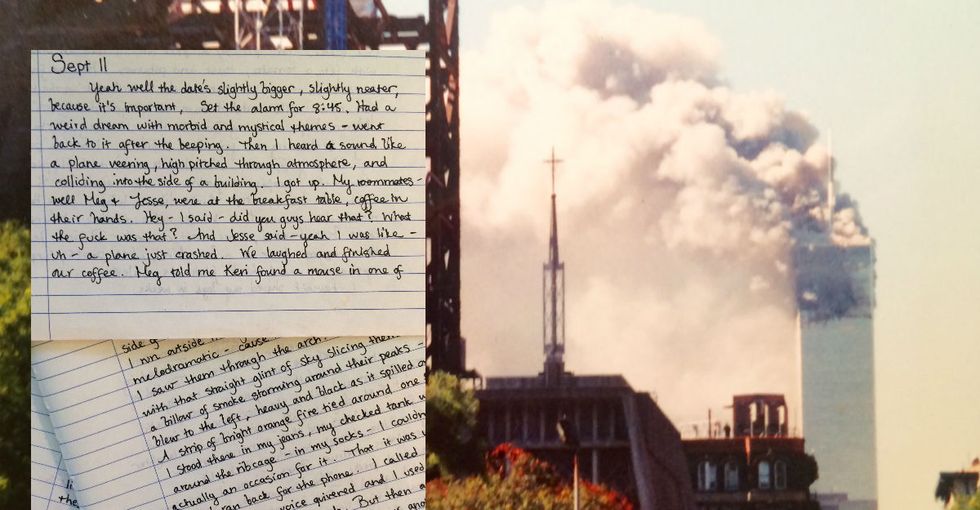 Sept 11
Yeah well the date's slightly bigger, slightly neater,
because it's important. Set the alarm for 8:45. Had a
weird dream with morbid and mystical themes - went
back to it after the beeping. Then I heard a sound like
a plane veering, high pitched through atmosphere, and
colliding into the side of a building. I got up. My roommates -
well Meg & Jesse, were at the breakfast table, coffee in
their hands. Hey - I said - did you guys hear that? What
the fuck was that? And Jesse said - yeah I was like -
uh - a plane just crashed. We laughed and finished
our coffee. Meg told me Keri found a mouse in one of
side
I run outside
melodramatic - cause
I saw them through the arch
with that straight glint of sky slicing them
a billow of smoke storming around their peaks -
blew to the left, heavy and black as it spilled
A strip of bright orange fire tied around one
I stood there in my jeans, my checked tank
around the ribcage - in my socks - I couldn
actually an occasion for it. That it was
ran back for the phone. I called
voice quivered and I used
But then a
li
the